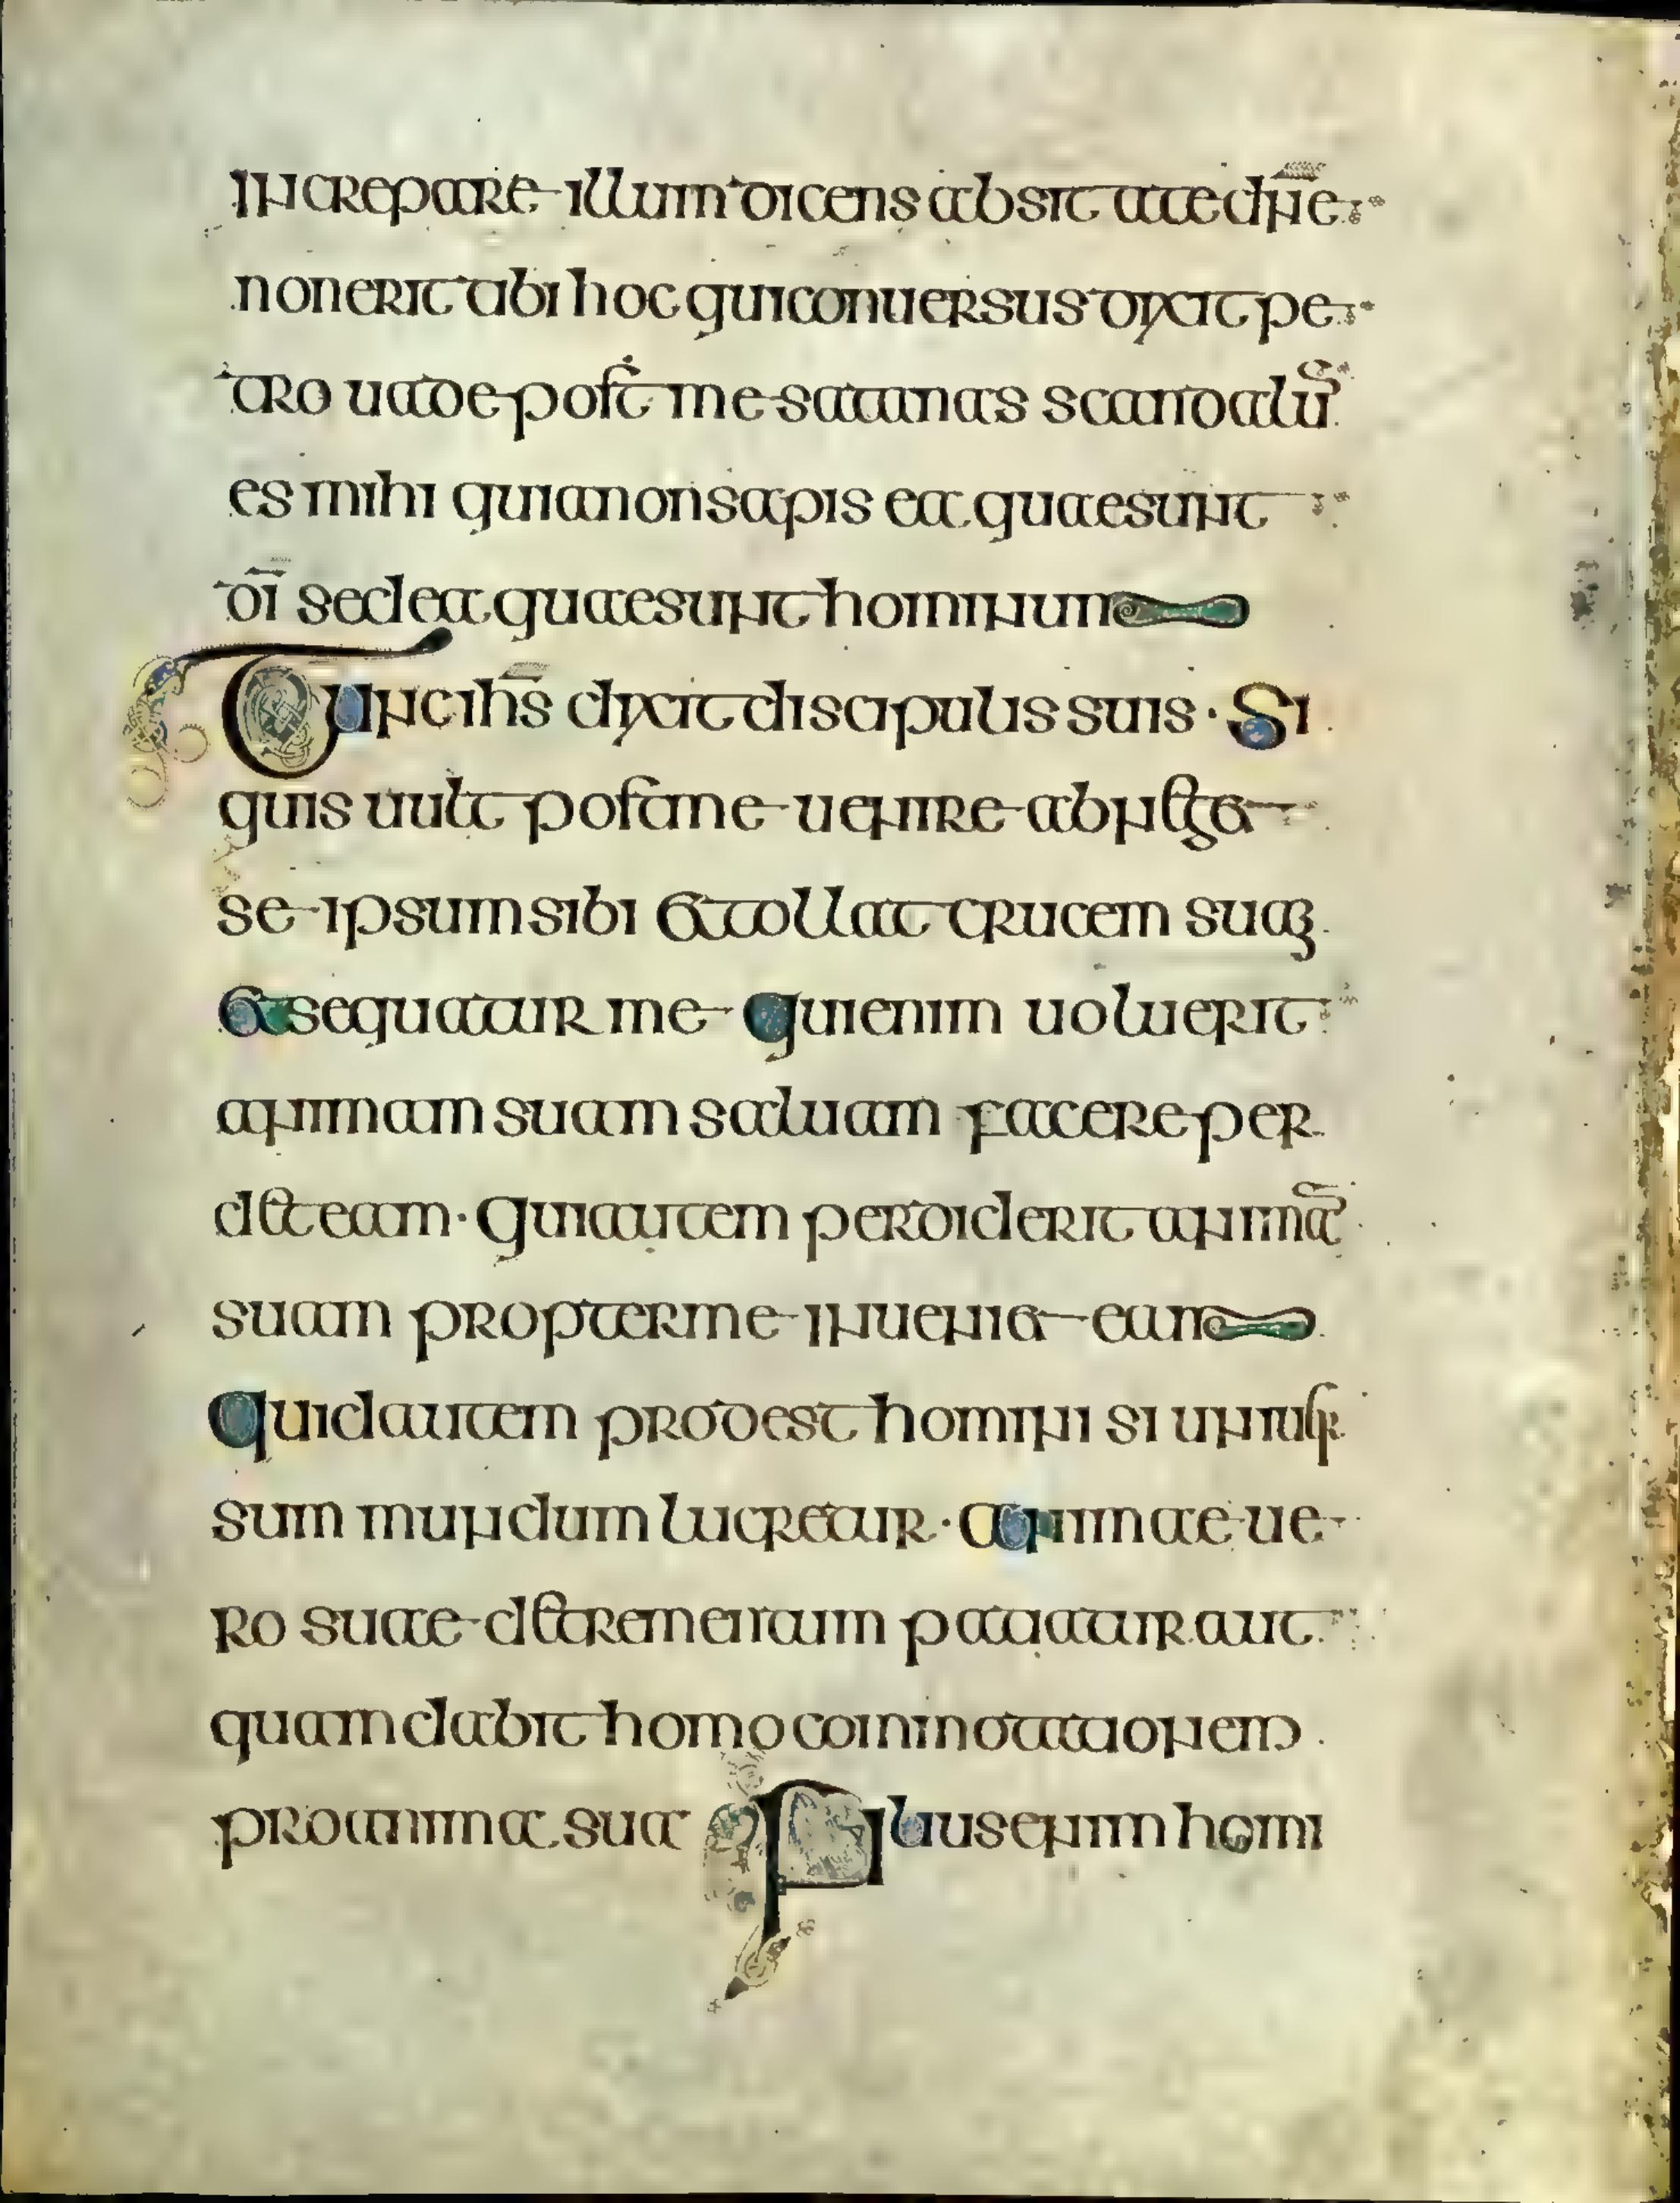 increpare illum dicens absit ate dn̄e
non erit tibi hoc qui conuersus dixit pe
tro uade post me satanas scandalū
es mihi quia non sapis ea quae sunt
dī sed ea quae sunt hominum
Tunc ihs̄ dixit discipulis suis · Si
quis uult post me uenire abneget
se ipsum sibi et tollat crucem suam
et sequatur me qui enim uoluerit
animam suam saluam facere per
det eam · qui autem perdiderit animā
suam propter me inueniet eam
quid autem prodest homini si uniuer
sum mundum lucretur · animae ue
ro suae detrementum patiatur aut
quam dabit homo commotationem
pro anima sua Filius enim homi